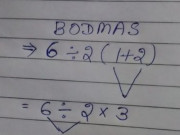 BODMAS
⇒ 6 ÷ 2 ( 1+2 )
= 6 ÷ 2 × 3